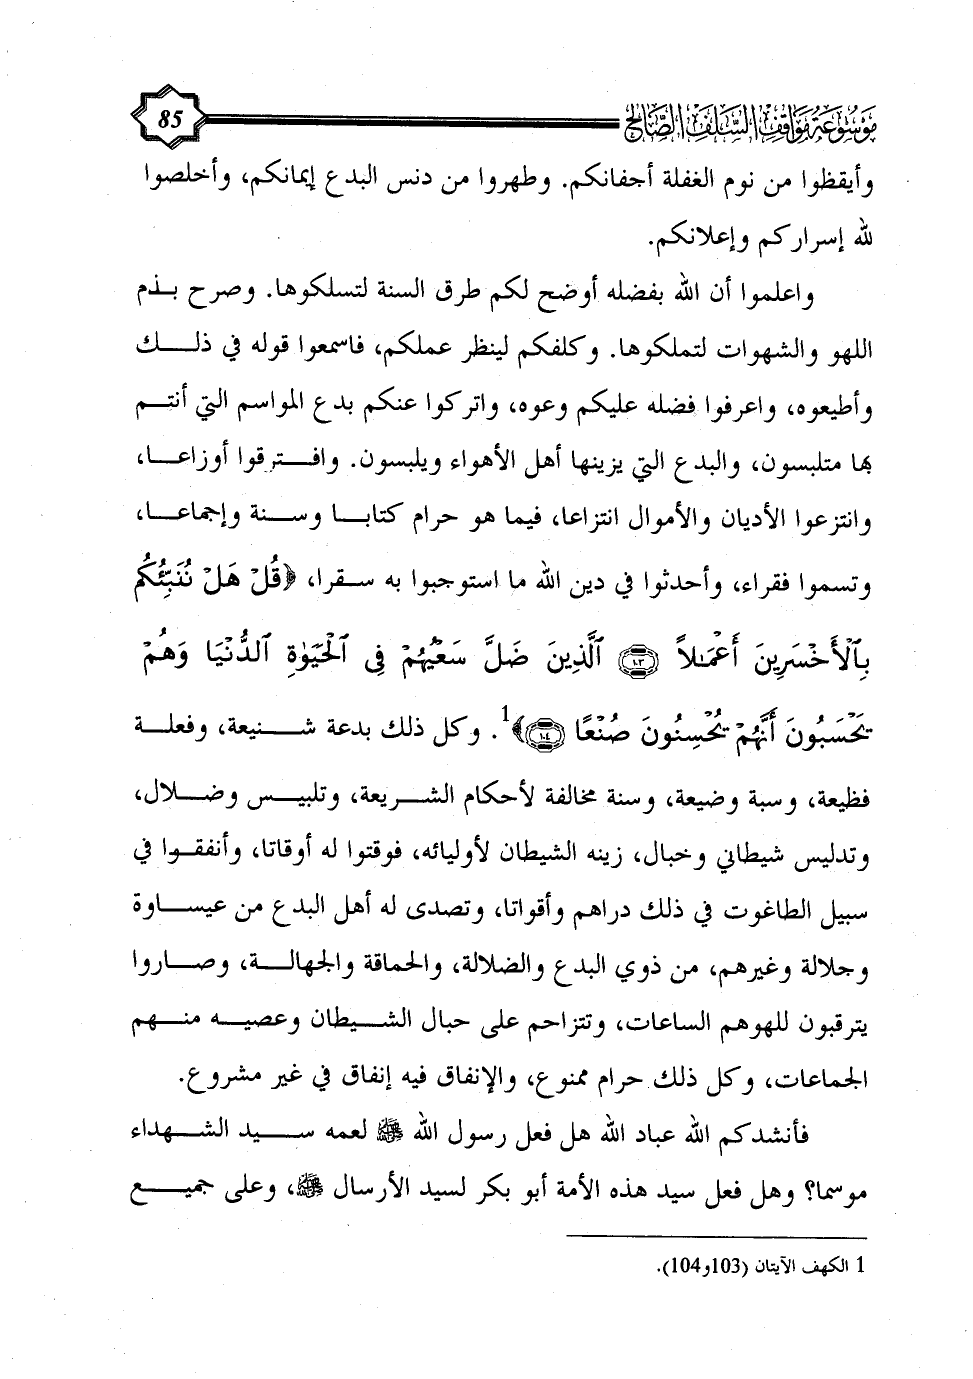 موسوعة مواقف السلف الصالح
85
وأيقظوا من نوم الغفلة أجفانكم. وطهروا من دنس البدع إيمانكم، وأخلصوا
لله إسراركم وإعلانكم.
واعلموا أن الله بفضله أوضح لكم طرق السنة لتسلكوها. وصرح بذم
اللهو والشهوات لتملكوها. وكلفكم لينظر عملكم، فاسمعوا قوله في ذلك
وأطيعوه، واعرفوا فضله عليكم وعوه، واتركوا عنكم بدع المواسم التي أنتم
بها متلبسون، والبدع التي يزينها أهل الأهواء ويلبسون. وافترقوا أوزاعا،
وانتزعوا الأديان والأموال انتزاعا، فيما هو حرام كتابا وسنة وإجماعا،
وتسموا فقراء، وأحدثوا في دين الله ما استوجبوا به سقرا، ﴿قُلْ هَلْ نُنَبِّئُكُم
بِٱلْأَخْسَرِينَ أَعْمَٰلًا ١٠٣ ٱلَّذِينَ ضَلَّ سَعْيُهُمْ فِى ٱلْحَيَوٰةِ ٱلدُّنْيَا وَهُمْ
يَحْسَبُونَ أَنَّهُمْ يُحْسِنُونَ صُنْعًا ١٠٤﴾1. وكل ذلك بدعة شنيعة، وفعلة
فظيعة، وسبة وضيعة، وسنة مخالفة لأحكام الشريعة، وتلبيس وضلال،
وتدليس شيطاني وخبال، زينه الشيطان لأوليائه، فوقتوا له أوقاتا، وأنفقوا في
سبيل الطاغوت في ذلك دراهم وأقواتا، وتصدى له أهل البدع من عيساوة
وجلالة وغيرهم، من ذوي البدع والضلالة، والحماقة والجهالة، وصاروا
يترقبون للهوهم الساعات، وتتزاحم على حبال الشيطان وعصيه منهم
الجماعات، وكل ذلك حرام ممنوع، والإنفاق فيه إنفاق في غير مشروع.
فأنشدكم الله عباد الله هل فعل رسول الله ﷺ لعمه سيد الشهداء
موسما؟ وهل فعل سيد هذه الأمة أبو بكر لسيد الأرسال ﷺ، وعلى جميع
1 الكهف الآيتان (103و104).